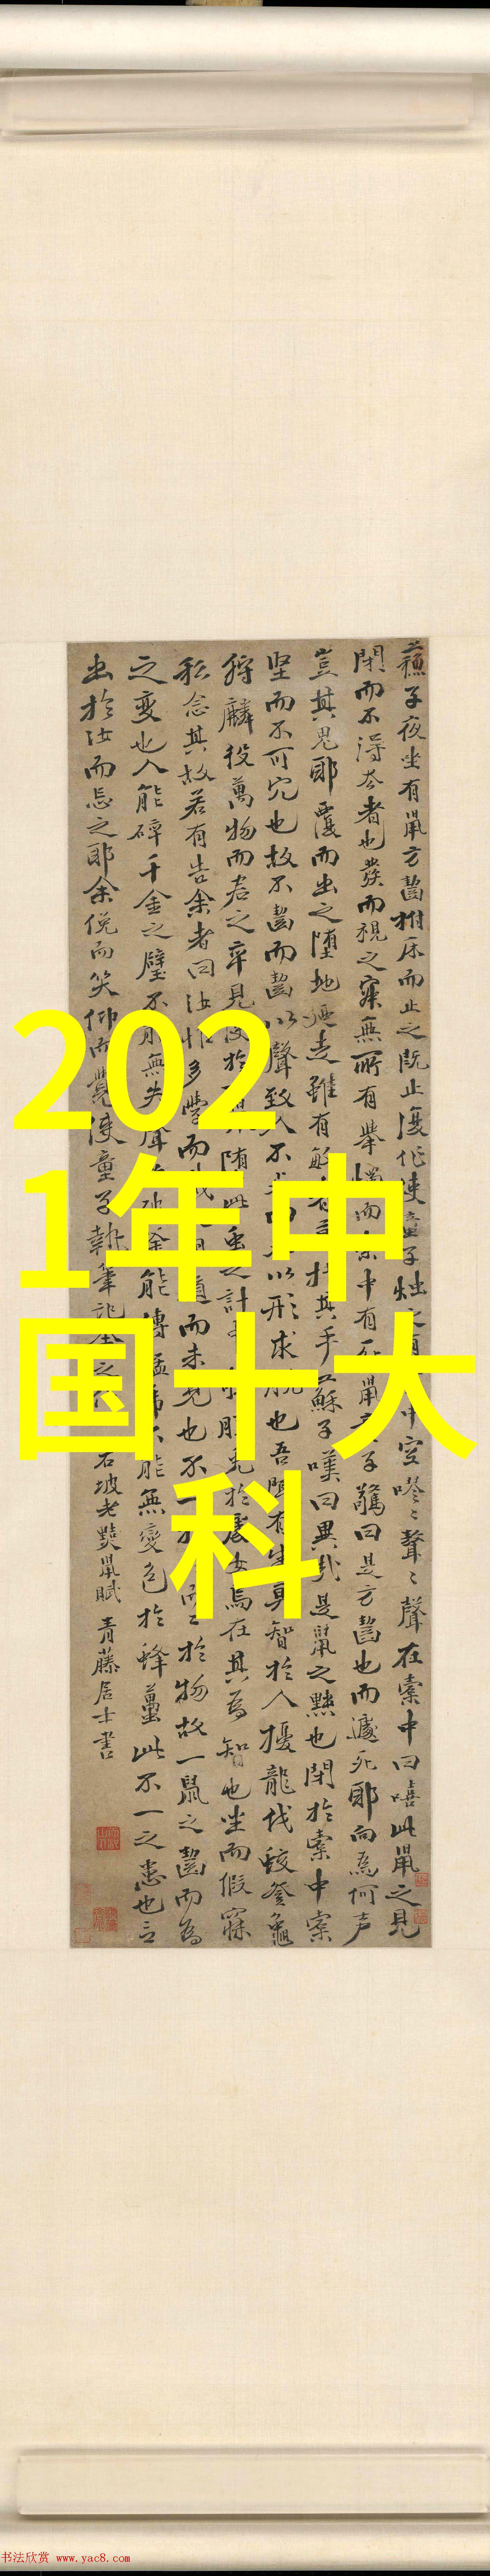 2021年中国十大科
蘇子夜坐有鼠方齧拊床而止之既止復作使童子燭之有中空嘐〻聱〻聲在橐中曰嘻此鼠之見
閉而不得去者也發而視之寂無所有舉燭而索中有死鼠童子驚曰是方齧也而遽死耶向為何声
豈其鬼耶覆而出之墮地迺走雖有敏者莫措其手蘇子嘆曰異哉是鼠之黠也閉於橐中橐
坚而不可穴也故不齧而齧以聲致人不死而死以形求脫也吾聞有生莫智於人擾龍伐蛟登龜
狩麟役萬物而君之卒見使於鼠墮此虫之計中脫兔於處女烏在其為知也坐而假寐
私念其故若有告余者曰汝惟多學而識之道而未見也不一於而二於物故一鼠之齧而為
之變也人能碎千金之璧不能無失聲於破釜能搏猛虎不能無變色於蜂蠆此不一之患也言
出於汝而忘之耶余俛而笑仰而覺使童子執筆記余之作
右坡老黠鼠賦 青藤居士書
书法欣赏 www.yac8.com